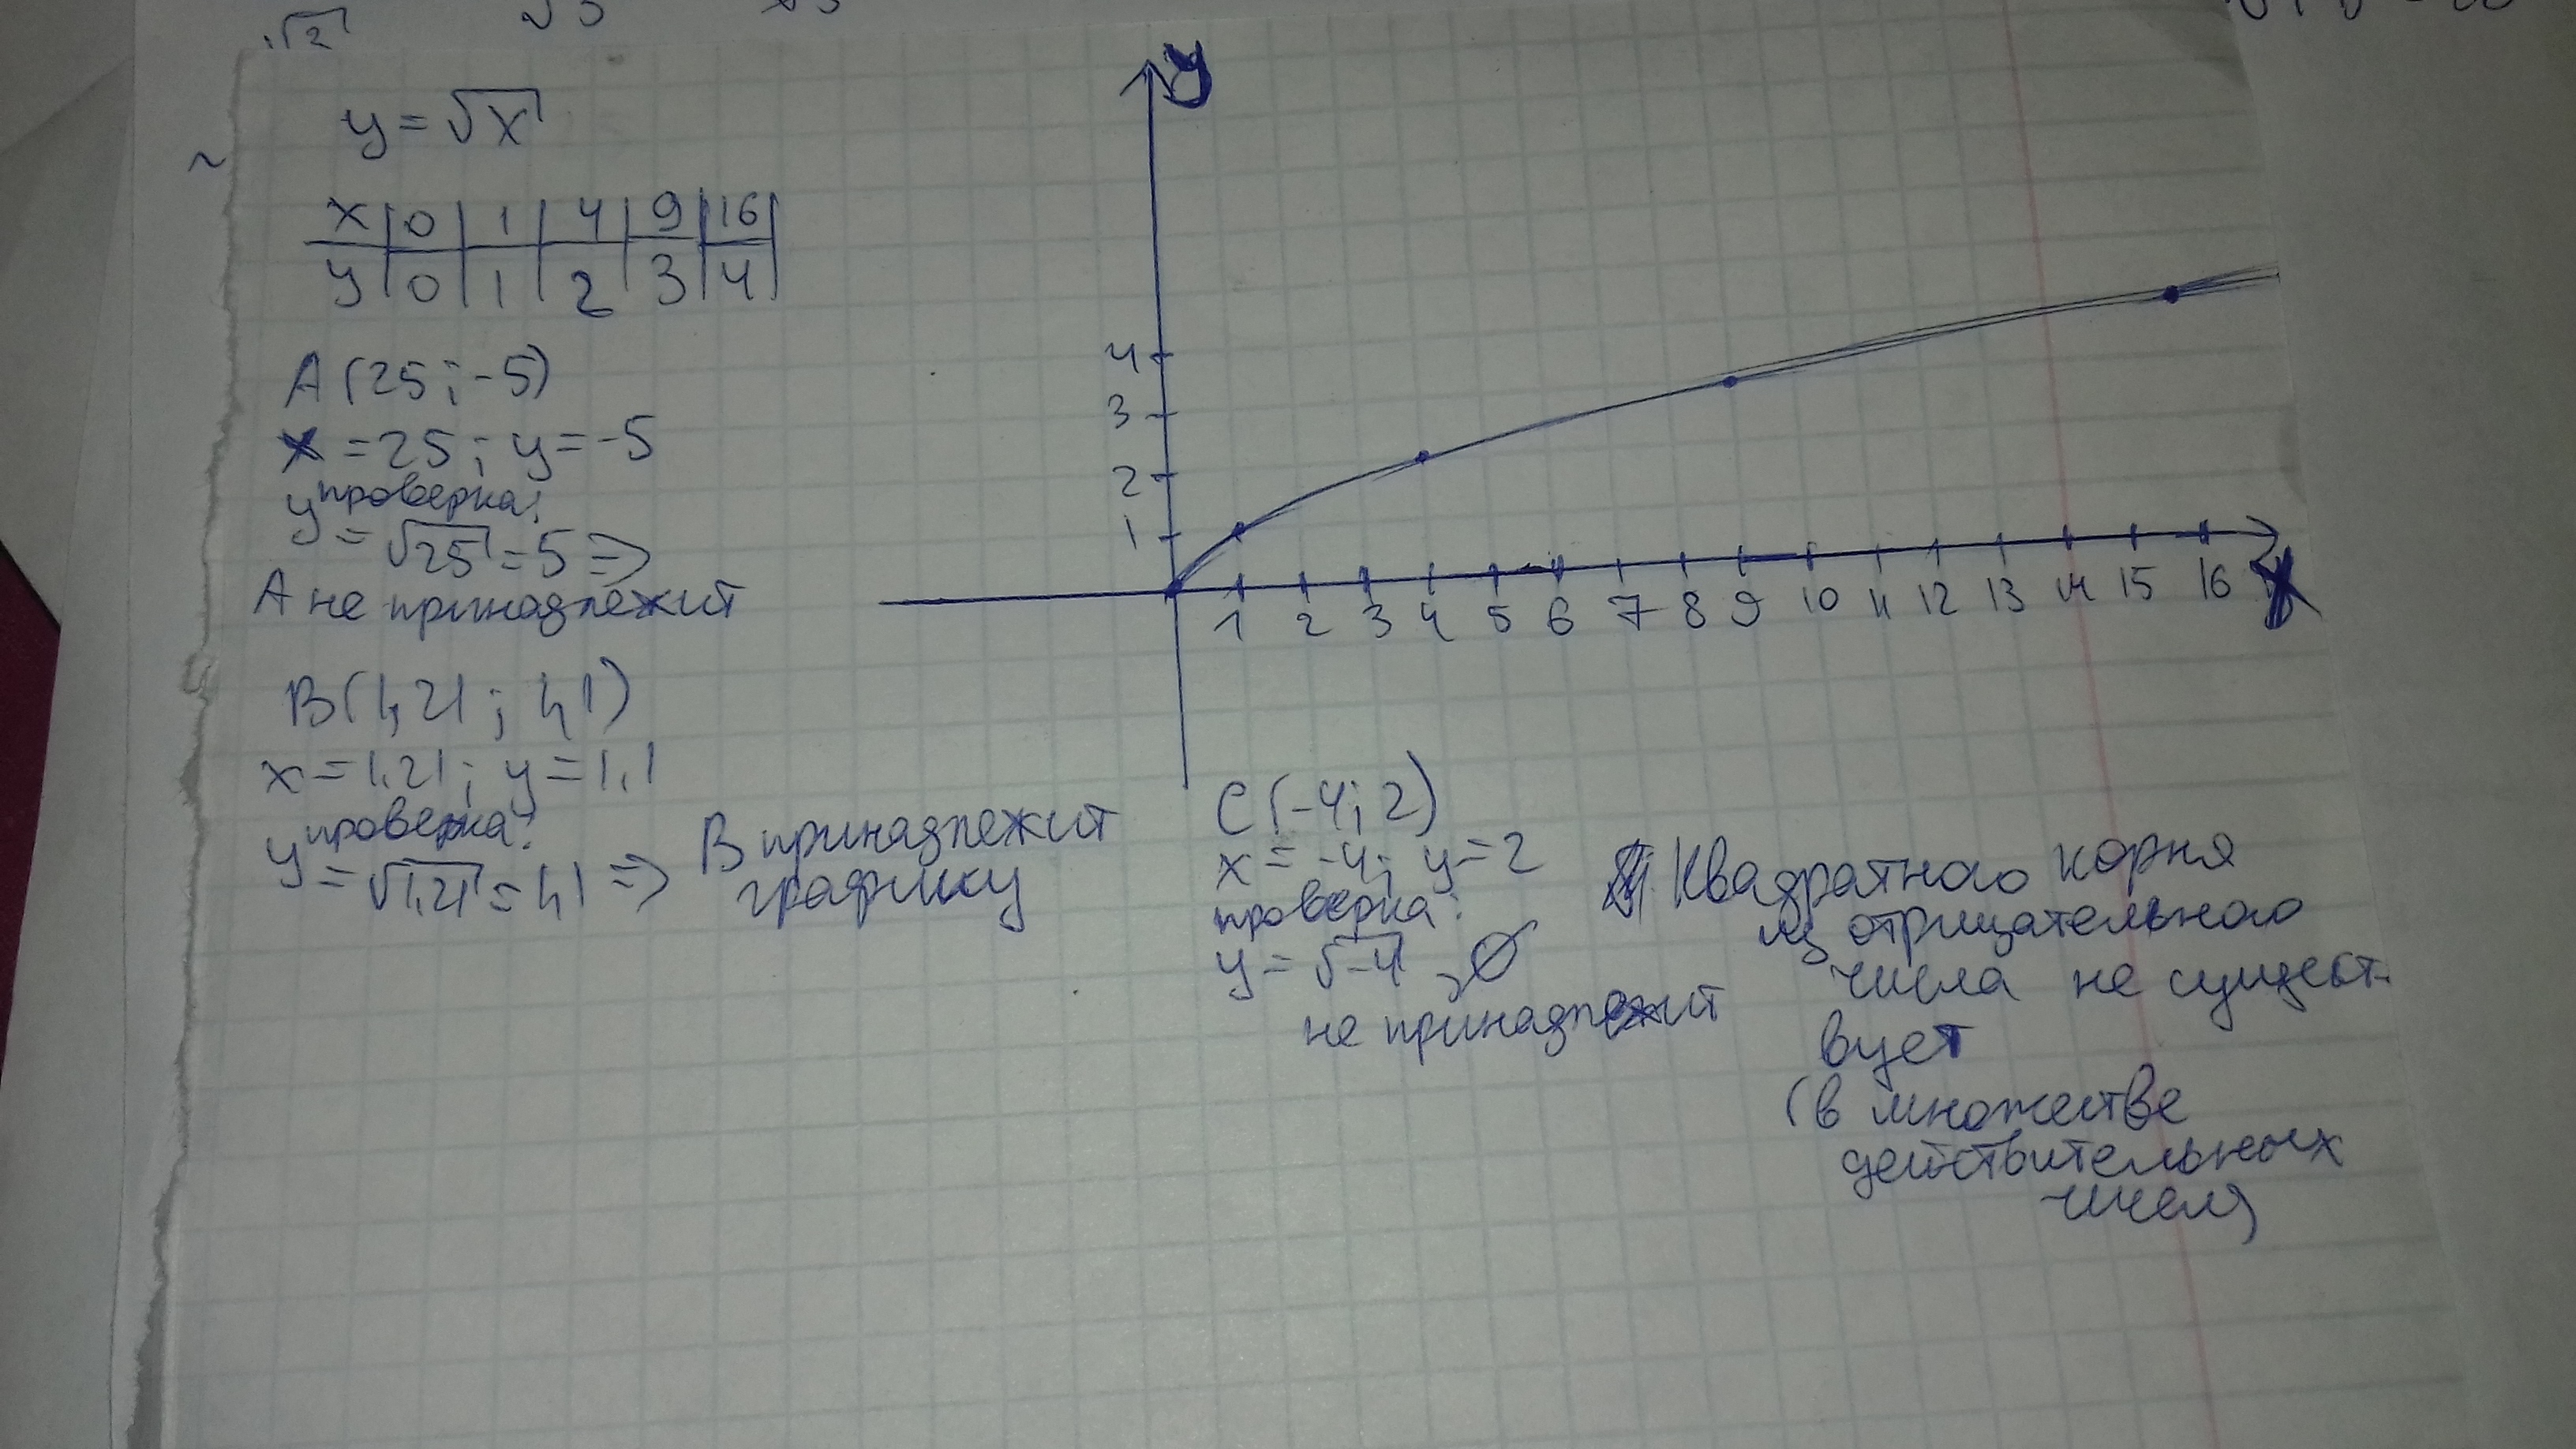 √2
y = √x
x 0 1 4 9 16
y 0 1 2 3 4
A (25; -5)
x = 25; y = -5
проверка:
y = √25 = 5 ⇒
A не принадлежит
B(1,21; 1,1)
x = 1,21; y = 1,1
проверка:
y = √1,21 = 1,1 ⇒
B принадлежит
графику
y
4
3
2
1
1 2 3 4 5 6 7 8 9 10 11 12 13 14 15 16
x
C (-4; 2)
x = -4; y = 2
проверка:
y = √-4, ∅
не принадлежит
Квадратного корня
из отрицательного
числа не сущест-
вует
(в множестве
действительных
чисел)